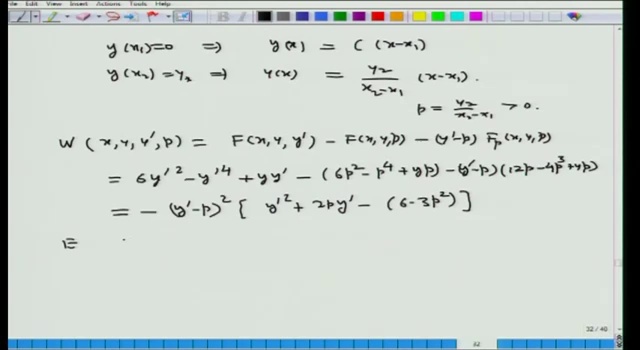 View Insert Actions Tools Help
y(x₁)=0 ⇒ y(x) = C (x-x₁)
y(x₂)=y₂ ⇒ y(x) = y₂/(x₂-x₁) (x-x₁).
p = y₂/(x₂-x₁) > 0.
W(x,y,y',p) = F(x,y,y') - F(x,y,p) - (y'-p) Fₚ(x,y,p)
= 6y'² - y'⁴ + yy' - (6p² - p⁴ + yp) - (y'-p)(12p-4p³+yp)
= - (y'-p)² [ y'² + 2py' - (6-3p²) ]
E
32 / 40
62